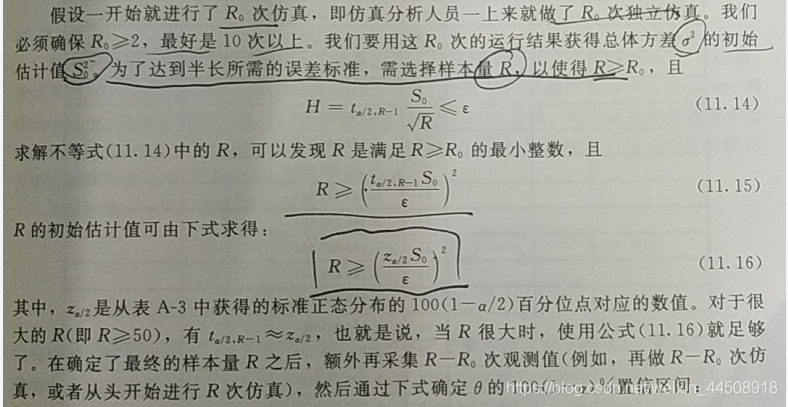 假设一开始就进行了 R₀ 次仿真，即仿真分析人员一上来就做了 R₀ 次独立仿真。我们
必须确保 R₀≥2，最好是 10 次以上。我们要用这 R₀ 次的运行结果获得总体方差 σ² 的初始
估计值 S₀²。为了达到半长所需的误差标准，需选择样本量 R，以使得 R≥R₀，且
H = t_{α/2,R-1} S₀/√R ≤ ε (11.14)
求解不等式(11.14)中的 R，可以发现 R 是满足 R≥R₀ 的最小整数，且
R ≥ (t_{α/2,R-1}S₀/ε)² (11.15)
R 的初始估计值可由下式求得：
R ≥ (z_{α/2}S₀/ε)² (11.16)
其中，z_{α/2}是从表 A-3 中获得的标准正态分布的 100(1-α/2)百分位点对应的数值。对于很
大的 R(即 R≥50)，有 t_{α/2,R-1}≈z_{α/2}，也就是说，当 R 很大时，使用公式(11.16)就足够
了。在确定了最终的样本量 R 之后，额外再采集 R-R₀ 次观测值(例如，再做 R-R₀ 次仿
真，或者从头开始进行 R 次仿真)，然后通过下式确定 θ 的 置信区间：
https://blog.csdn.net/weixin_44508918